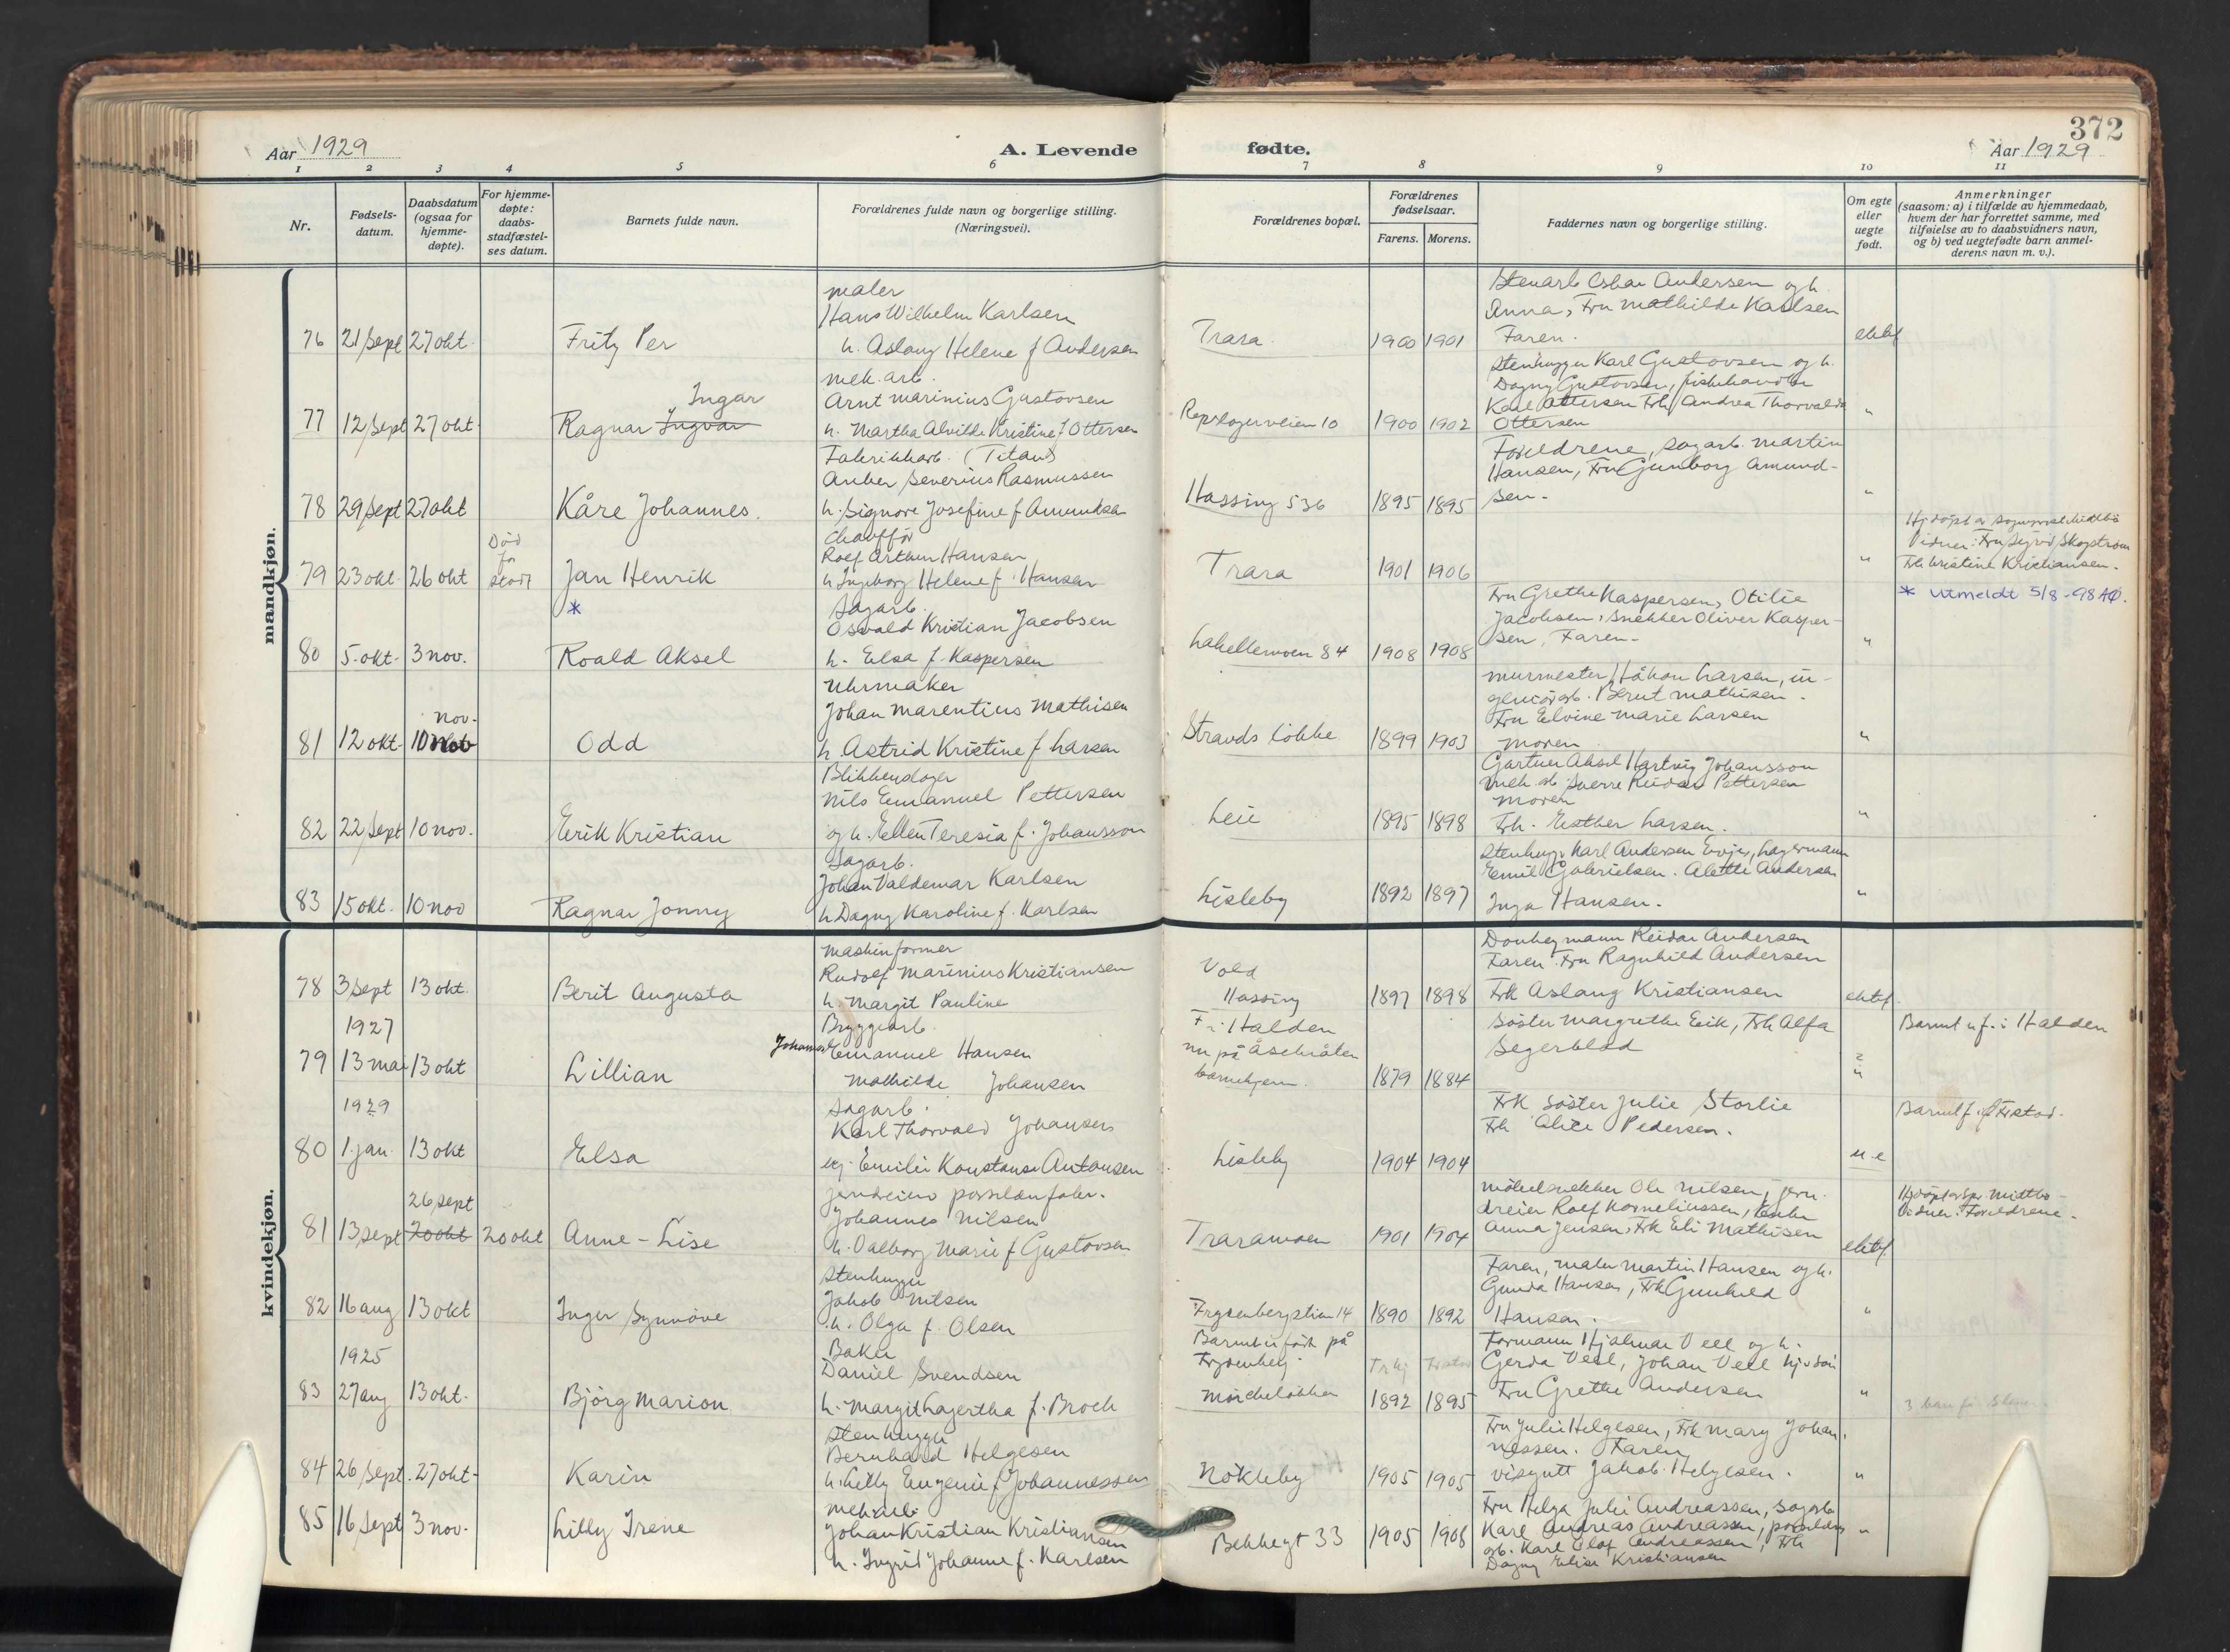 Aar 1929
A. Levende
fødte.
372
Aar 1929
1 2 3 4 5 6 7 8 9 10 11
Nr.
Fødsels-
datum.
Daabsdatum
(ogsaa for
hjemme-
døpte).
For hjemme-
døpte:
daabs-
stadfæstel-
ses datum.
Barnets fulde navn.
Forældrenes fulde navn og borgerlige stilling.
(Næringsvei).
Forældrenes bopæl.
Forældrenes
fødselsaar.
Farens. Morens.
Faddernes navn og borgerlige stilling.
Om egte
eller
uegte
født.
Anmerkninger
(saasom: a) i tilfælde av hjemmedaab,
hvem der har forrettet samme, med
tilføielse av to daabsvidners navn,
og b) ved uegtefødte barn anmel-
derens navn m. v.).
mandkjøn.
76 21 Sept 27 okt.
Fritz Per
maler
Hans Wilhelm Karlsen
h. Aslaug Helene f Andersen
Trara
1900 1901
Andersen og h.
Anna, Fru Mathilde Karlsen
Faren.
ektef
77 12 Sept 27 okt.
Ingar
Ragnar Ingvar
mek. arb.
Arnt Marinius Gustavsen
h. Martha Alvilde Kristine f Ottersen
Repslagerveien 10
1900 1902
Stenhugger Karl Gustavsen og h.
Dagny Gustavsen, fiskehandler
Karl Ottersen Frk Andrea Thorvalda
Ottersen
"
78 29 Sept 27 okt
Kåre Johannes.
Fabrikkarb. (Titan)
Anker Severius Rasmussen
h. Signore Josefine f Amundsen
Hassing 536
1895 1895
Foreldrene, sagarb. Martin
Hansen, Fru Gunborg Amund-
sen.
"
79 23 okt. 26 okt
Død
før
stadf
Jan Henrik
chauffør
Rolf Arthur Hansen
h Ingborg Helene f. Hansen
Trara
1901 1906
"
Hj.døpt av
Vidner: Fru Sigrid Skogstrøm
Frk Kristine Kristiansen.
80 5. okt. 3 nov.
*
Roald Aksel
Sagarb.
Osvald Kristian Jacobsen
h. Elsa f. Kaspersen
Lakellermoen 84
1908 1908
Fru Grethe Kaspersen, Otilie
Jacobsen, Snekker Oliver Kasper-
sen, Faren.
"
* Utmeldt 5/8-98 AØ.
81 12 okt. 10 nov.
Odd
Uhrmaker
Johan Marentius Mathisen
h. Astrid Kristine f Larsen
Strands løkke
1899 1903
murmester Håkon Larsen, in-
geniørarb. Bernt Mathisen.
Fru Elvine Marie Larsen
Moren
"
82 22 Sept 10 nov.
Erik Kristian
Blikkenslager
Nils Emanuel Pettersen
og h. Ellen Teresia f. Johansson
Leie
1895 1898
Gartner Aksel Hartvig Johansson
mek arb Sverre Reidar Pettersen
Moren
Frk. Esther Larsen.
"
83 15 okt. 10 nov
Ragnar Jonny
Sagarb.
Johan Valdemar Karlsen
h Dagny Karoline f. Karlsen
Lisleby
1892 1897
Stenhugg. Karl Andersen Evje, Lagermann
Emil Gabrielsen. Alette Andersen
Inga Hansen.
"
kvindekjøn.
78 3 Sept 13 okt.
Berit Augusta
Maskinformer
Rudolf Marinius Kristiansen
h. Margit Pauline
Vold
Hassing
1897 1898
Donkeymann Reidar Andersen
Faren. Fru Ragnhild Andersen
Frk Aslaug Kristiansen
ektef.
1927
79 13 mai 13 okt
Lillian
Bryggearb.
Johannes Emanuel Hansen
Mathilde Johansen
F. i Halden
nu på Åsebråten
barnehjem.
1879 1884
Søster Margrethe Eeik, Frk Alfa
Segerblad
Barnet u f. i Halden
1929
80 1. jan. 13 okt
Elsa
Sagarb.
Karl Thorvald Johansen
Emilie Konstanse Antonsen
Lisleby
1904 1904
Frk Søster Julie Storlie
Frk Alice Pedersen.
u e
Barnet f. i Frstad.
26 sept
81 13 sept 20 okt 20 okt
Anne-Lise
jerndreier porselænfabr.
Johannes Nilsen
h. Valborg Marie f Gustavsen
Traramoen
1901 1904
møbelsnekker Ole Nilsen, jern.
dreier Rolf Korneliussen,
Anna Jensen, Frk Eli Mathisen
ektef.
Hj.døpt av Spr. Midttbø
Vidner: Foreldrene.
82 16 aug 13 okt
Inger Synnøve
Stenhugger
Jakob Nilsen
h. Olga f. Olsen
Frydenbergstien 14
1890 1892
Faren, maler Martin Hansen og h.
Gunda Hansen, Frk Gunhild
Hansen.
"
1925
83 27 aug 13 okt.
Bjørg Marion
Baker
Daniel Svendsen
h. Margit Lagertha f. Broch
Barnet er født på
Frydenberg.
1892 1895
Formann Hjalmar Veel og h.
Gerda Veel, Johan Veel
Fru Grethe Andersen
"
84 26 sept. 27 okt.
Karin
Stenhugger
Bernhard Helgesen
h. Lilly Eugenie f Johannessen
Nøkleby
1905 1905
Fru Julie Helgesen, Frk Mary Johan-
nessen. Faren
visergutt Jakob Helgesen.
"
85 16 sept 3 nov.
Lilly Irene
mek arb.
Johan Kristian Kristiansen
h. Ingrid Johanne f. Karlsen
Bekkegt 33
1905 1906
Fru Helga Julie Andreassen, sagarb
Karl Andreas Andreassen, porselens
arb. Karl Olaf Andreassen, Frk
Dagny Elise Kristiansen
"